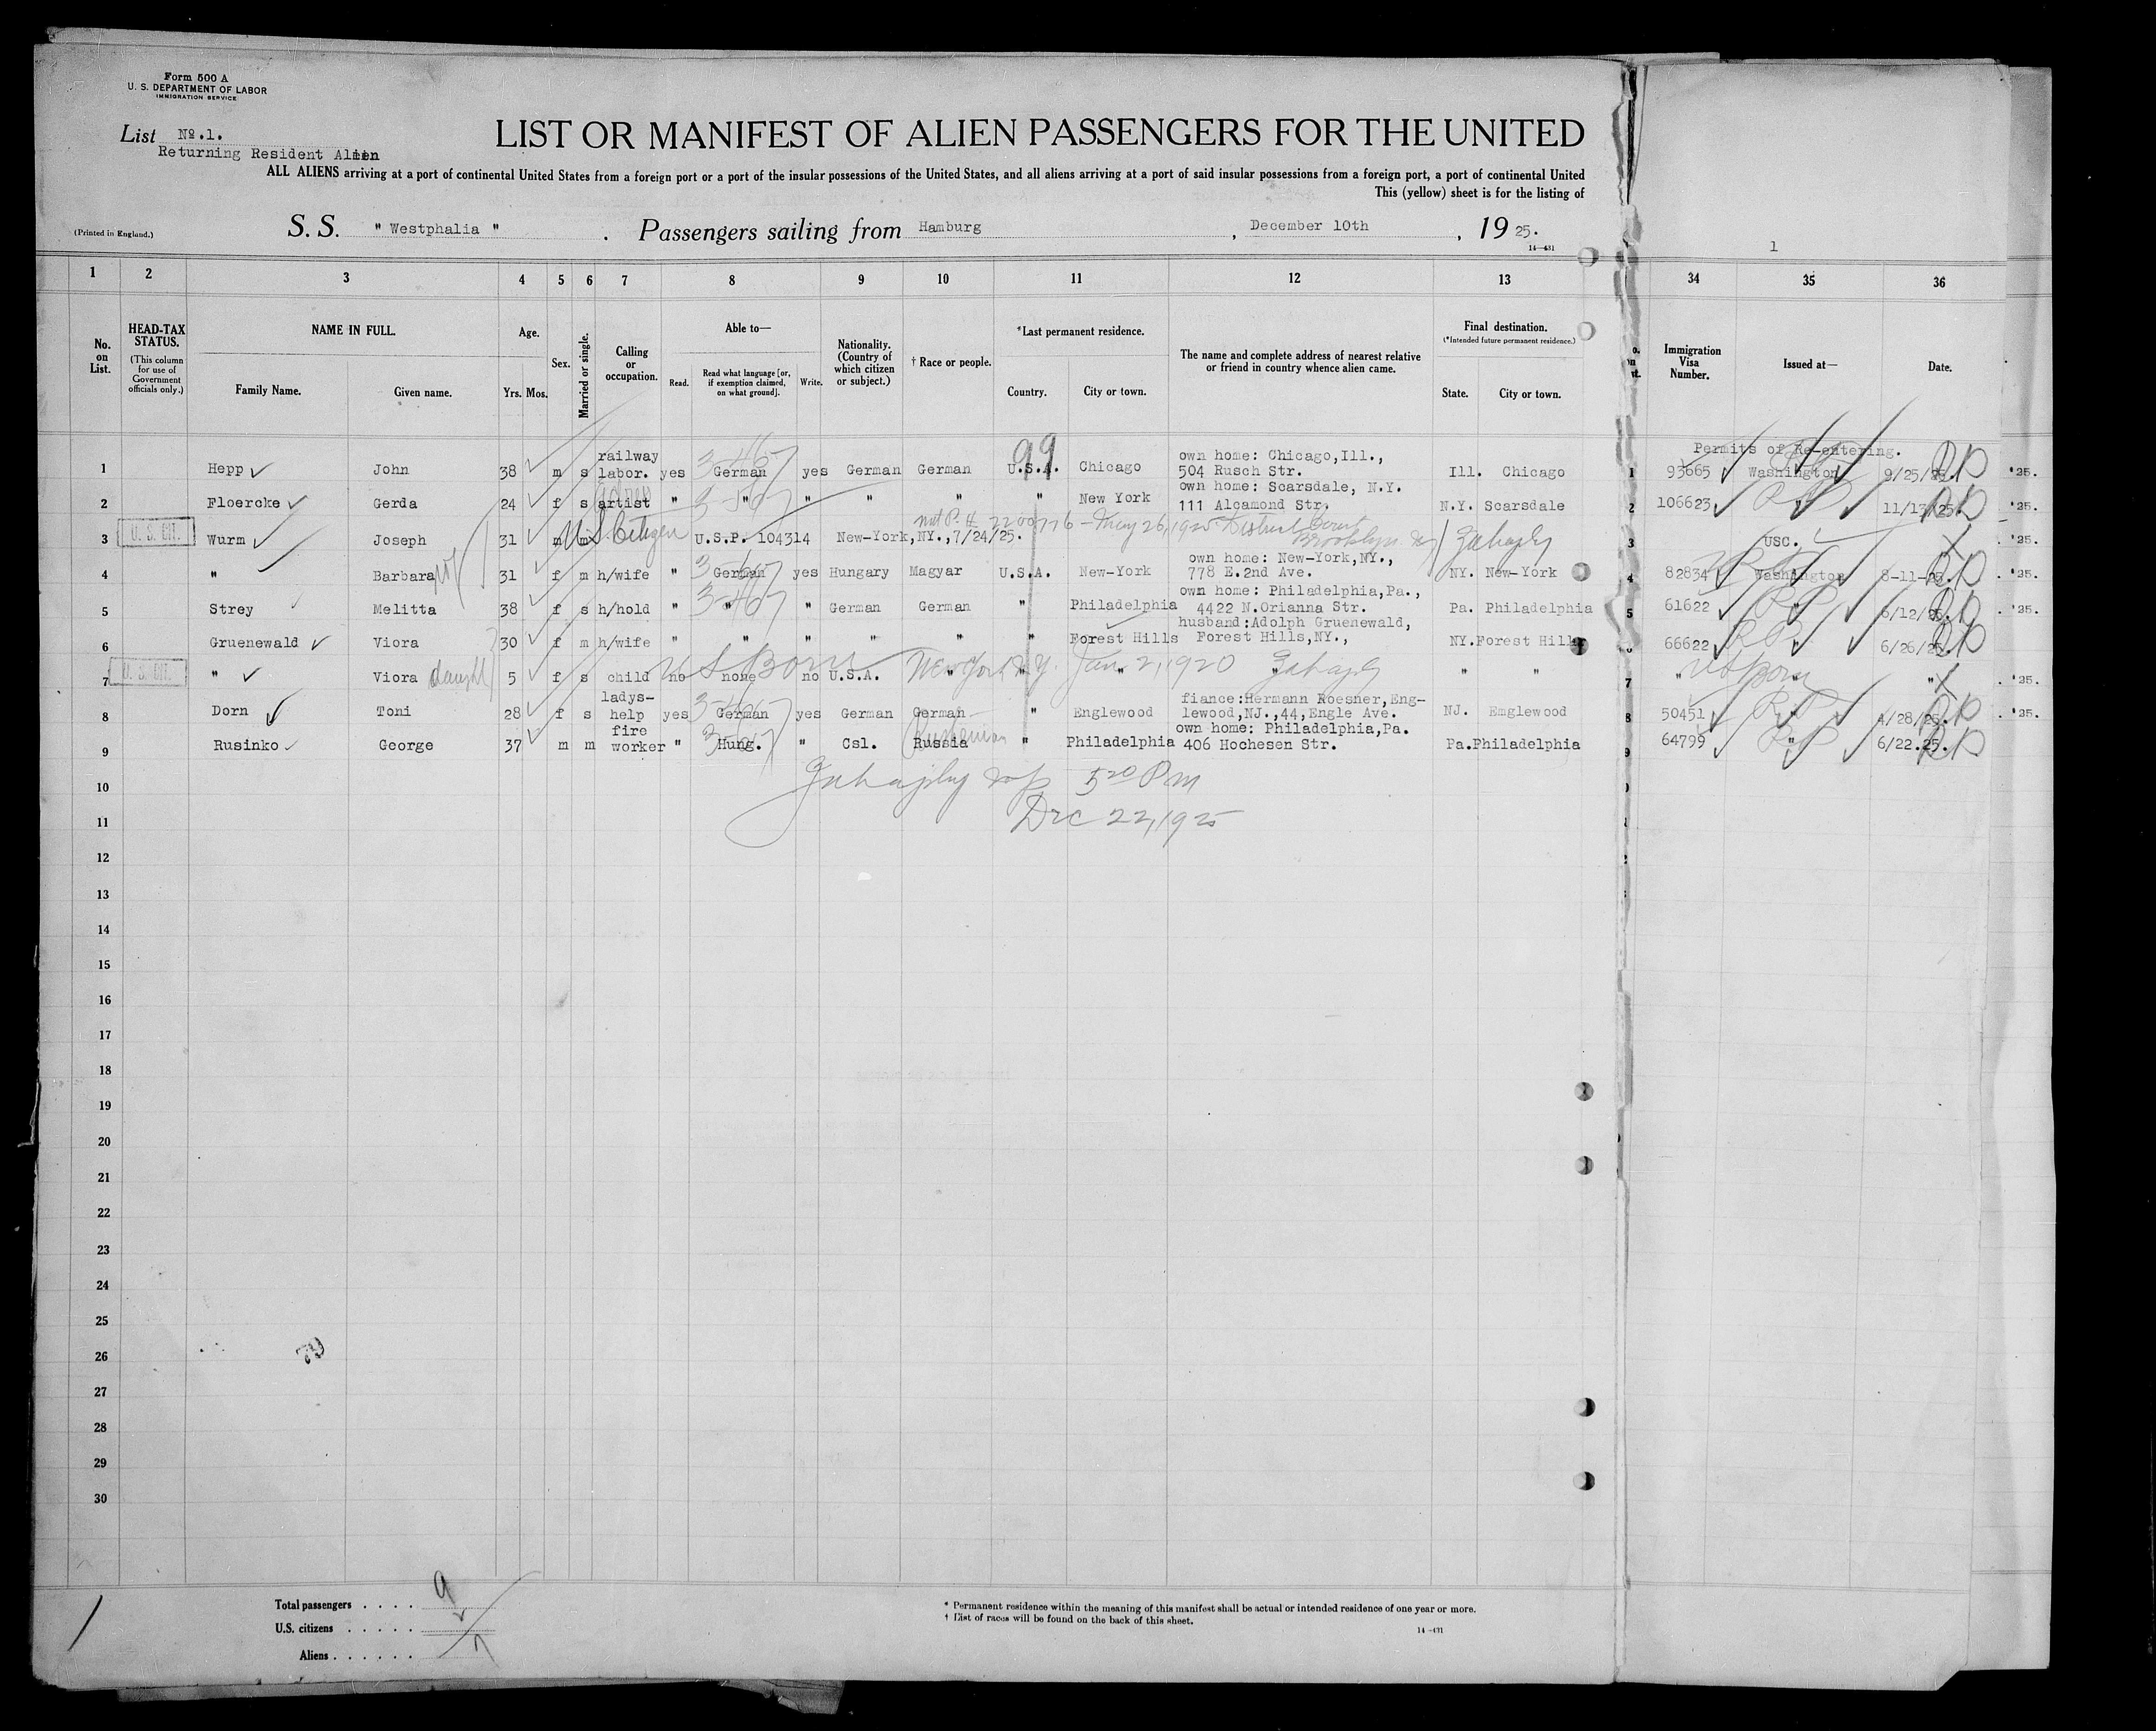 Form 500 A
U. S. DEPARTMENT OF LABOR
IMMIGRATION SERVICE
List No.1.
Returning Resident Alien
LIST OR MANIFEST OF ALIEN PASSENGERS FOR THE UNITED
ALL ALIENS arriving at a port of continental United States from a foreign port or a port of the insular possessions of the United States, and all aliens arriving at a port of said insular possessions from a foreign port, a port of continental United
This (yellow) sheet is for the listing of
(Printed in England.)
S. S. " Westphalia " . Passengers sailing from Hamburg , December 10th , 19 25.
14—431
1
1 2 3 4 5 6 7 8 9 10 11 12 13 34 35 36
No. on List.
HEAD-TAX STATUS.
(This column for use of Government officials only.)
NAME IN FULL.
Family Name. Given name.
Age.
Yrs. Mos.
Sex.
Married or single.
Calling or occupation.
Able to—
Read. Read what language [or, if exemption claimed, on what ground]. Write.
Nationality. (Country of which citizen or subject.)
† Race or people.
*Last permanent residence.
Country. City or town.
The name and complete address of nearest relative or friend in country whence alien came.
Final destination.
(*Intended future permanent residence.)
State. City or town.
Immigration Visa Number.
Issued at—
Date.
Permits of Re-entering.
99
1 Hepp John 38 m s railway labor. yes German yes German German U.S.A. Chicago own home: Chicago,Ill., 504 Rusch Str. Ill. Chicago 1 93665 Washington 9/25/25. '25.
2 Floercke Gerda 24 f s artist " " " " " " New York own home: Scarsdale, N.Y. 111 Alcamond Str. N.Y. Scarsdale 2 106623 " 11/13/25 '25.
3 U. S. CIT. Wurm Joseph 31 m m US Citizen U.S.P. 104314 New-York,NY.,7/24/25. May 26, 1925 District Court Brooklyn NY 3 USC. X '25.
4 " Barbara 31 f m h/wife " German yes Hungary Magyar U.S.A. New-York own home: New-York,NY., 778 E.2nd Ave. NY. New-York 4 82834 Washington 8-11-25. '25.
5 Strey Melitta 38 f s h/hold " " " German German " Philadelphia own home: Philadelphia,Pa., 4422 N.Orianna Str. Pa. Philadelphia 5 61622 " 6/12/25. '25.
6 Gruenewald Viora 30 f m h/wife " " " " " " Forest Hills husband:Adolph Gruenewald, Forest Hills,NY., NY.Forest Hills 66622 R P 6/26/25
7 U. S. CIT. " Viora daught 5 f s child no none no U.S.A. " " " " " " US Born New York N.Y. Jan. 2, 1920 7 " US Born " X '25.
8 Dorn Toni 28 f s ladys-help yes German yes German German " Englewood fiance:Hermann Roesner,Eng-lewood,NJ.,44,Engle Ave. NJ. Emglewood 8 50451 " 4/28/25. '25.
9 Rusinko George 37 m m fire worker " Hung. " Csl. Russia " Philadelphia own home: Philadelphia,Pa. 406 Hochesen Str. Pa.Philadelphia 9 64799 " 6/22.25.
10 5 20 PM
11 Dec 22, 1925
12
13
14
15
16
17
18
19
20
21
22
23
24
25
26
27
28
29
30
Total passengers . . . . 9
U.S. citizens . . . . . 2
Aliens . . . . . . 7
* Permanent residence within the meaning of this manifest shall be actual or intended residence of one year or more.
† List of races will be found on the back of this sheet.
14—431